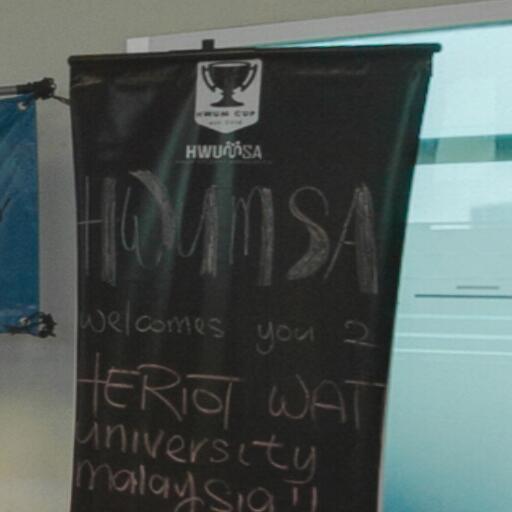 HWUM CUP
HWUMSA
HWUMSA
welcomes you 2
HERIOT WATT
university
malaysia !!